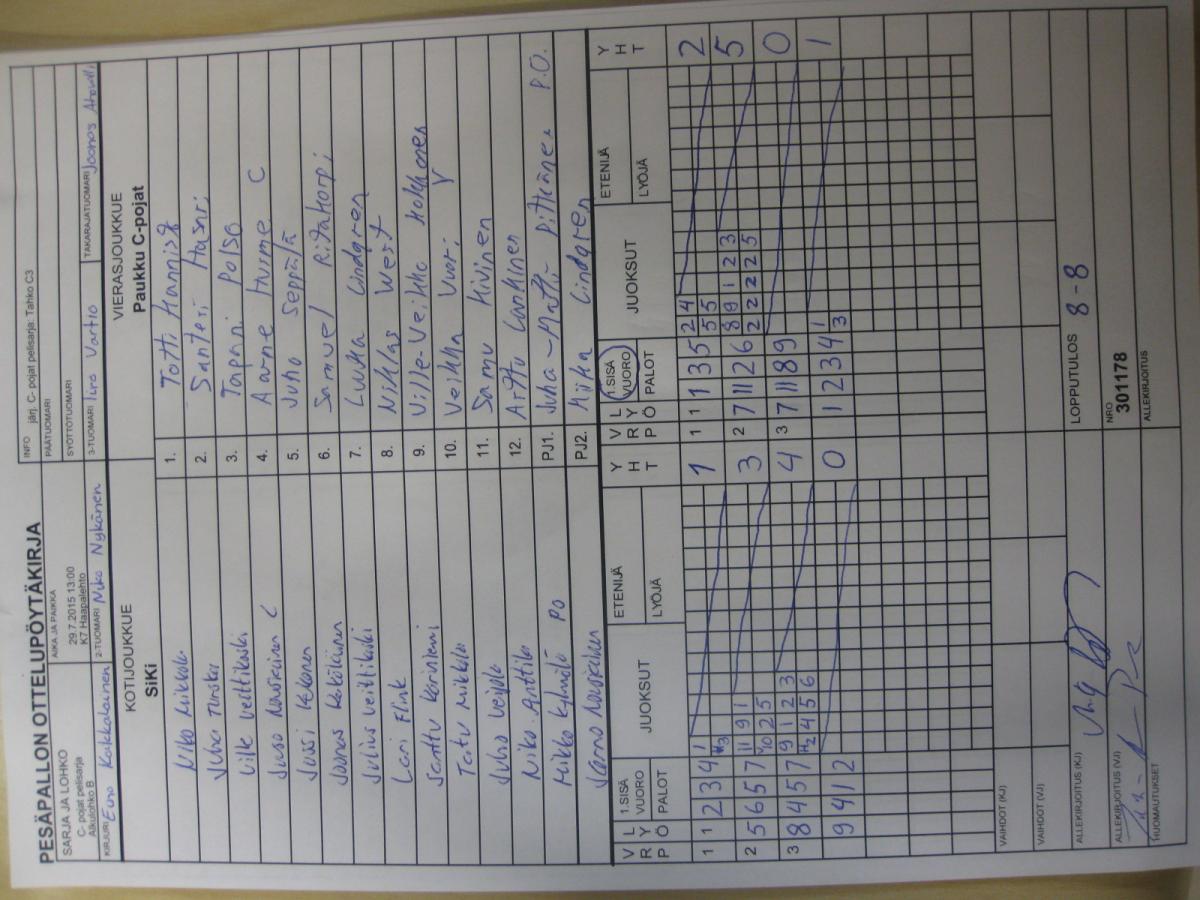 PESÄPALLON OTTELUPÖYTÄKIRJA
INFO järj. C- pojat pelisarja: Tahko C3
SARJA JA LOHKO
C- pojat pelisarja
Alkulohko B
AIKA JA PAIKKA
29.7.2015 13:00
K7 Haapalehto
PÄÄTUOMARI
SYÖTTÖTUOMARI
KIRJURI Eino Kaikkalainen
2-TUOMARI Niko Nykänen
3-TUOMARI Iiro Vartio
TAKARAJATUOMARI Joonas
KOTIJOUKKUE
SiKi
VIERASJOUKKUE
Paukku C-pojat
Niko Mikkola 1. Totti Hannist
Juha Turska 2. Santeri Hasari
Ville Veittikoski 3. Tapani Polso
Juuso C 4. Aarne Hurme C
Jussi Kekonen 5. Juho Seppälä
Joonas 6. Samuel Ritakorpi
Julius Veittikoski 7. Luukka Lindgren
Lari Flink 8. Niklas West
Santtu Koriniemi 9. Ville-Veikko Holkkonen
Tatu Mikkola 10. Veikka Vuori V
Juho Veijola 11. Samu Kivinen
Niko Anttila 12. Arttu Lankinen
Mikko Kylmälä PO PJ1. Juha-Matti Pitkänen P.O.
Jarno PJ2. Miika Lindgren
V R P
L Y Ö
1.SISÄ VUORO
PALOT
JUOKSUT
ETENIJÄ
LYÖJÄ
Y H T
V R P
L Y Ö
1.SISÄ VUORO
PALOT
JUOKSUT
ETENIJÄ
LYÖJÄ
Y H T
1 1 2 3 4 1 3 1
1 1 1 3 5 2 4 5 5 2
2 5 6 5 7 11 9 1 10 2 5 3
2 7 11 2 6 8 9 1 2 3 2 2 2 2 5 5
3 8 4 5 7 9 1 2 3 2 4 5 6 4
3 7 11 8 9 0
9 4 1 2 0
0 1 2 3 4 1 3 1
VAIHDOT (KJ)
VAIHDOT (VJ)
ALLEKIRJOITUS (KJ)
LOPPUTULOS 8-8
ALLEKIRJOITUS (VJ)
NRO
301178
HUOMAUTUKSET
ALLEKIRJOITUS